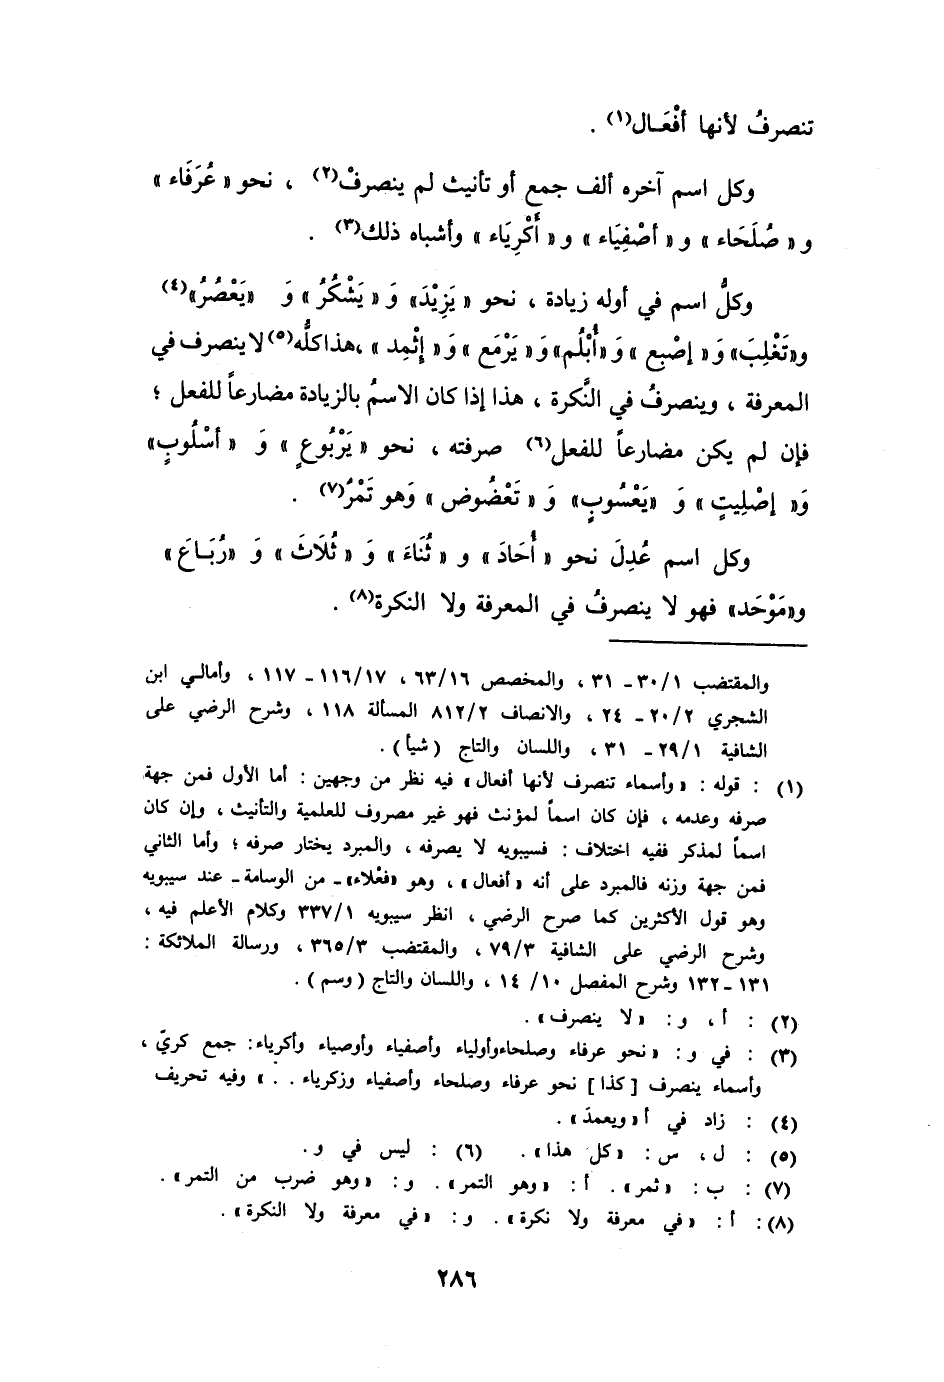 تنصرفُ لأنها أفْعَـال(١) .
وكل اسم آخره ألف جمع أو تأنيث لم ينصرفْ(٢) ، نحو « عُرَفَاء »
و « صُلَحَاء » و « أصْفِيَاء » و « أَكْرِيَاء » وأشباه ذلك(٣) .
وكلُّ اسم في أوله زيادة ، نحو « يَزِيْدَ» وَ « يَشْكُرُ » وَ «يَعْصُرُ»(٤)
و«تَغْلِبَ» وَ « إصْبِع » وَ «أُبْلُم» وَ « يَرْمَع » وَ « إثْمِد » ،هذا كلُّه(٥) لا ينصرف في
المعرفة ، وينصرفُ في النَّكرة ، هذا إذا كان الاسمُ بالزيادة مضارعاً للفعل ؛
فإن لم يكن مضارعاً للفعل(٦) صرفته ، نحو « يَرْبُوعٍ » وَ « أسْلُوبٍ»
وَ« إصْلِيتٍ » وَ «يَعْسُوبٍ» وَ « تَعْضُوض » وَهو تَمْرُ(٧) .
وكل اسم عُدِلَ نحو « أُحَادَ » و « ثُنَاءَ » وَ « ثُلَاثَ » وَ «رُبَـاعَ »
و«مَوْحَد» فهو لا ينصرفُ في المعرفة ولا النكرة(٨) .
والمقتضب ٣٠/١ ـ ٣١ ، والمخصص ٦٣/١٦ ، ١١٦/١٧ ـ ١١٧ ، وأمالي ابن
الشجري ٢٠/٢ ـ ٢٤ ، والانصاف ٨١٢/٢ المسألة ١١٨ ، وشرح الرضي على
الشافية ٢٩/١ ـ ٣١ ، واللسان والتاج ( شيأ ) .
(١) : قوله : « وأسماء تنصرف لأنها أفعال » فيه نظر من وجهين : أما الأول فمن جهة
صرفه وعدمه ، فإن كان اسماً لمؤنث فهو غير مصروف للعلمية والتأنيث ، وإن كان
اسماً لمذكر ففيه اختلاف : فسيبويه لا يصرفه ، والمبرد يختار صرفه ؛ وأما الثاني
فمن جهة وزنه فالمبرد على أنه « أفعال » ، وهو «فعْلاء»ـ من الوسامة ـ عند سيبويه
وهو قول الأكثرين كما صرح الرضي ، انظر سيبويه ٣٣٧/١ وكلام الأعلم فيه ،
وشرح الرضي على الشافية ٧٩/٣ ، والمقتضب ٣٦٥/٣ ، ورسالة الملائكة :
١٣١ ـ ١٣٢ وشرح المفصل ١٠/ ١٤ ، واللسان والتاج ( وسم ) .
(٢) : أ ، و : « لا ينصرف » .
(٣) : في و : « نحو عرفاء وصلحاءوأولياء وأصفياء وأوصياء وأكرياء : جمع كريّ ،
وأسماء ينصرف [ كذا ] نحو عرفاء وصلحاء وأصفياء وزكرياء . . » وفيه تحريف
(٤) : زاد في أ «ويعمدَ » .
(٥) : ل ، س : «كل هذا» . (٦) : ليس في و .
(٧) : ب : « ثمر » . أ : « وهو التمر » . و : « وهو ضرب من التمر » .
(٨) : أ : « في معرفة ولا نكرة » . و : « في معرفة ولا النكرة » .
٢٨٦